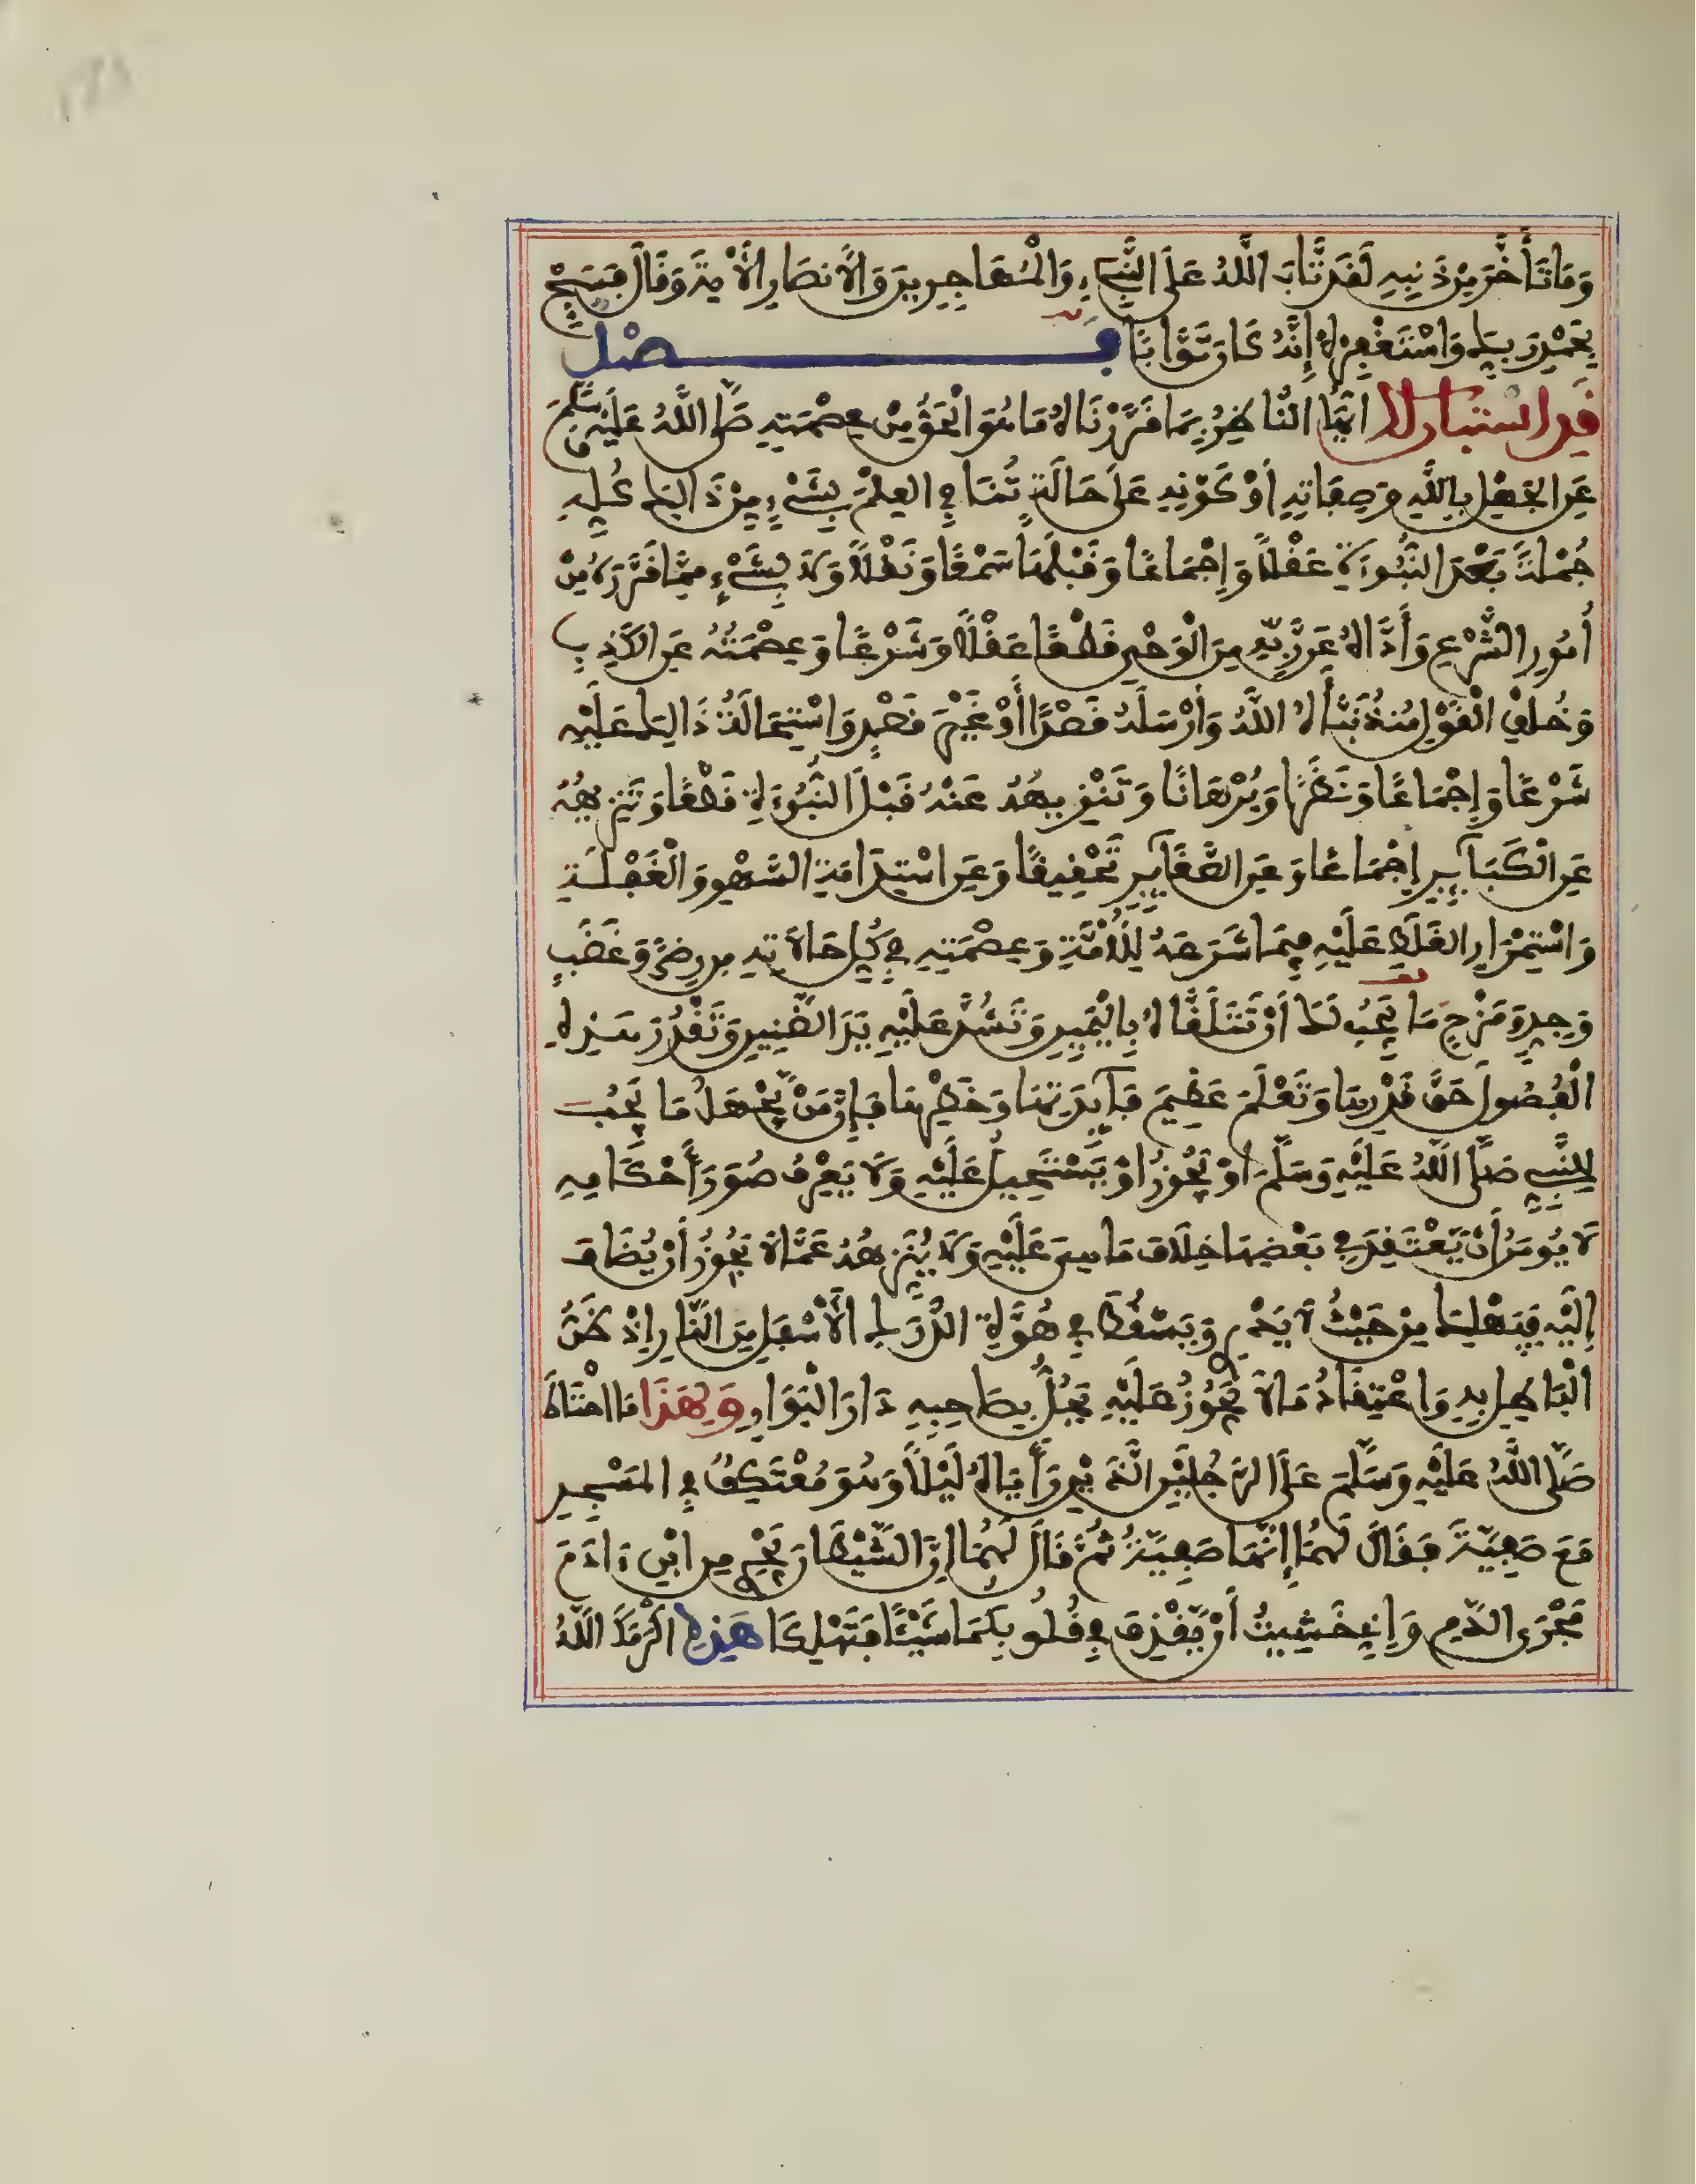 وَمَا تَأَخَّرَ مِن ذَنبِهِ لَقَد تَّابَ اللَّهُ عَلَى النَّبِيءِ وَالْمُهَاجِرِينَ وَالْأَنصَارِ الْأَيَةَ وَقَالَ فَسَبِّحْ
بِحَمْدِ رَبِّكَ وَاسْتَغْفِرْهُ إِنَّهُ كَانَ تَوَّابًا فصْل
قَدِ اسْتَبَانَ لَكَ أَيُّهَا النَّاظِرُ بِمَا قَرَّرْنَاهُ مَا هُوَ الْحَقُّ مِنْ عِصْمَتِهِ صَلَّى اللَّهُ عَلَيْهِ وَسَلَّمَ
عَنِ الْجَهْلِ بِاللَّهِ وَصِفَاتِهِ أَوْ كَوْنِهِ عَلَى حَالَةٍ تُنَافِي الْعِلْمَ بِشَيْءٍ مِنْ ذَالِكَ كُلِّهِ
جُمْلَةً بَعْدَ النُّبُوءَةِ عَقْلًا وَإِجْمَاعًا وَقَبْلَهَا سَمْعًا وَنَقْلًا وَلَا بِشَيْءٍ مِمَّا قَرَّرَهُ مِنْ
أُمُورِ الشَّرْعِ وَأَدَّاهُ عَن رَّبِّهِ مِنَ الْوَحْيِ قَطْعًا عَقْلًا وَشَرْعًا وَعِصْمَتُهُ عَنِ الْكَذِبِ
وَخُلْفِ الْقَوْلِ مُنْذُ نَبَّأَهُ اللَّهُ وَأَرْسَلَهُ قَصْدًا أَوْ غَيْرَ قَصْدٍ وَاسْتِحَالَةُ ذَالِكَ عَلَيْهِ
شَرْعًا وَإِجْمَاعًا وَنَظَرًا وَبُرْهَانًا وَتَنْزِيهُهُ عَنْهُ قَبْلَ النُّبُوءَةِ قَطْعًا وَتَنْزِيهُهُ
عَنِ الْكَبَائِرِ إِجْمَاعًا وَعَنِ الصَّغَائِرِ تَحْقِيقًا وَعَنِ اسْتِدَامَةِ السَّهْوِ وَالْغَفْلَةِ
وَاسْتِمْرَارِ الْغَلَطِ عَلَيْهِ فِيمَا شَرَعَهُ لِلْأُمَّةِ وَعِصْمَتِهِ فِي كُلِّ حَالَاتِهِ مِن رِضًى وَغَضَبٍ
وَجِدٍّ وَمَزْحٍ مَا يَجِبُ لَكَ أَن تَتَلَقَّاهُ بِالْيَمِينِ وَتَشُدَّ عَلَيْهِ يَدَ الضَّنِينِ وَتَقْدُرَ هَذِهِ
الْفُصُولَ حَقَّ قَدْرِهَا وَتَعْلَمَ عَظِيمَ فَائِدَتِهَا وَخَطَرِهَا فَإِنَّ مَنْ يَّجْهَلُ مَا يَجِبُ
لِلنَّبِيِّ صَلَّى اللَّهُ عَلَيْهِ وَسَلَّمَ أَوْ يَجُوزُ أَوْ يَسْتَحِيلُ عَلَيْهِ وَلَا يَعْرِفُ صُوَرَ أَحْكَامِهِ
لَا يُومَنُ أَنْ يَّعْتَقِدَ فِي بَعْضِهَا خِلَافَ مَا هِيَ عَلَيْهِ وَلَا يُنَزِّهُهُ عَمَّا لَا يَجُوزُ أَن يُضَافَ
إِلَيْهِ فَيَهْلِكَ مِنْ حَيْثُ لَا يَدْرِي وَيَسْقُطَ فِي هُوَّةِ الدَّرَكِ الْأَسْفَلِ مِنَ النَّارِ إِذْ ظَنُّ
الْبَاطِلِ بِهِ وَاعْتِقَادُ مَا لَا يَجُوزُ عَلَيْهِ يَحُلُّ بِصَاحِبِهِ دَارَ الْبَوَارِ وَلِهَذَا مَا احْتَاطَ
صَلَّى اللَّهُ عَلَيْهِ وَسَلَّمَ عَلَى الرَّجُلَيْنِ الَّذَيْنِ رَأَيَاهُ لَيْلًا وَهُوَ مُعْتَكِفٌ فِي الْمَسْجِدِ
مَعَ صَفِيَّةَ فَقَالَ لَهُمَا إِنَّهَا صَفِيَّةُ ثُمَّ قَالَ لَهُمَا إِنَّ الشَّيْطَانَ يَجْرِي مِنِ ابْنِ ءَادَمَ
مَجْرَى الدَّمِ وَإِنِّي خَشِيتُ أَنْ يَّقْذِفَ فِي قُلُوبِكُمَا شَيْئًا فَتَهْلِكَا هَذِهِ أَكْرَمَكَ اللَّهُ